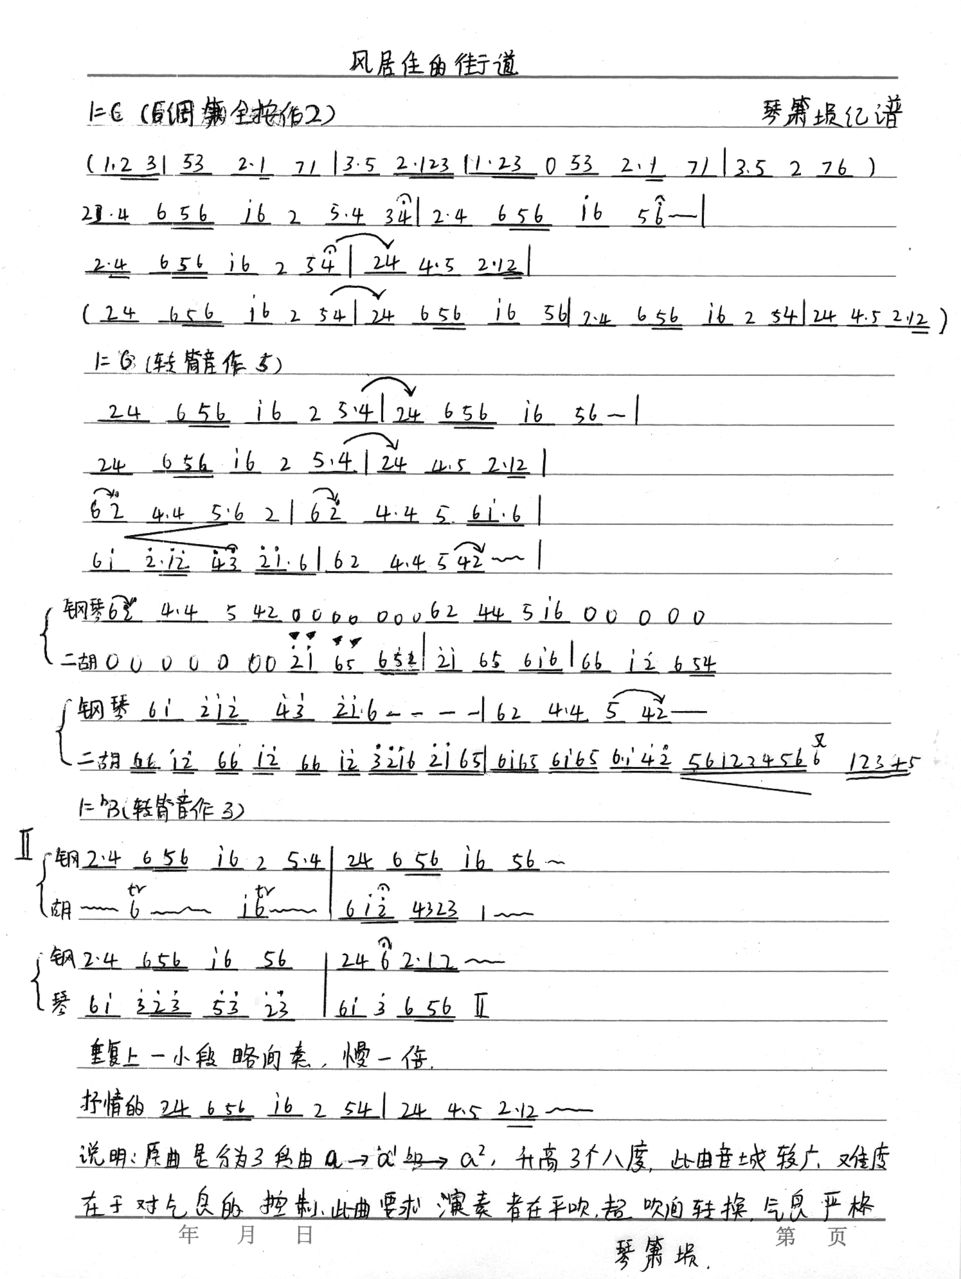 风居住的街道
1=C（G调箫全按作2） 琴箫埙纪谱
(1.23|53 2.1 71|3.5 2.123|1.23 0 53 2.1 71|3.5 2 76)
2.4 656 i6 2 5.4 34|2.4 656 i6 56—|
2.4 656 i6 2 54|24 4.5 2.12|
(24 656 i6 2 54|24 656 i6 56|2.4 656 i6 2 54|24 4.5 2.12)
1=G（转筒音作5）
24 656 i6 2 5.4|24 656 i6 56~|
24 656 i6 2 5.4|24 4.5 2.12|
62 4.4 5.6 2|62 4.4 5 6i.6|
6i 2.i2 43 2i.6|62 4.4 5 42~~|
钢琴 62 4.4 5 42 0000 00062 44 5 i6 0 0 0 0 0
二胡 0 0 0 0 0 00 2i 65 652|2i 65 6i6|66 i2 654
钢琴 6i 2i2 43 2i.6----|62 4.4 5 42—
二胡 66 i2 66 i2 66 i2 32i6 2i65|6i65 6i65 6i42 561223456 6 12345
1=bB（转筒音作3）
II 钢 2.4 656 i6 2 5.4|24 656 i6 56~
胡 ~~ tr 6 ~~ i6 tr ~~|6i2 4323 1~~
钢 2.4 656 i6 56|246 2.12~~
琴 6i 323 53 23|6i 3 656 II
重复上一小段 略间奏，慢一倍.
抒情的 24 656 i6 2 54|24 4.5 2.12~~
说明：原曲是分为3段由a→a¹→a²，升高3个八度，此曲音域较广.难度
在于对气息的控制.此曲要求演奏者在平吹.超吹间转换.气息严格
年 月 日 第 页
琴箫埙.